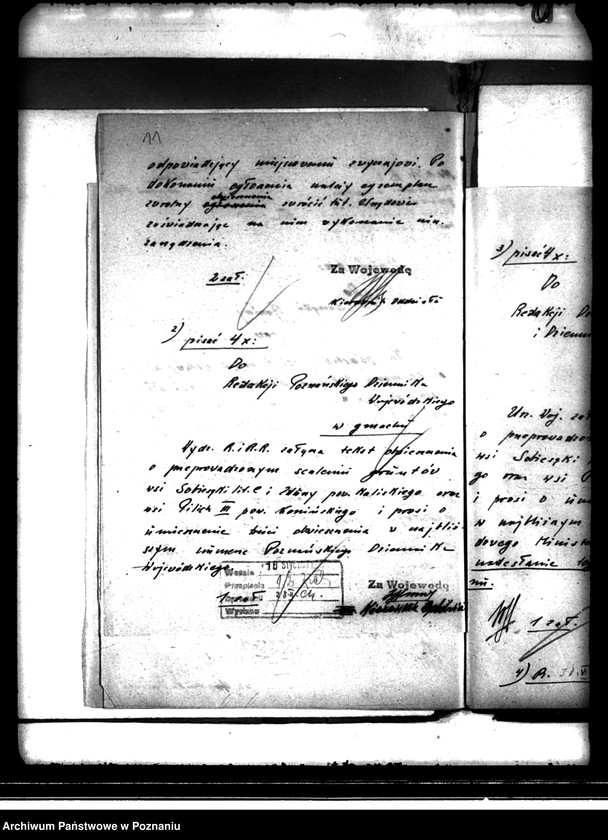 11
odpowiadający miejscowemi zwyczajowi. Po
dokonaniu ogłoszenia należy egzemplarz
zwrotny obwieszczenia zwrócić tut. Urzędowi
zaświadczając na nim wykonanie nin.
zarządzenia.
2 zał.
Za Wojewodę
Kierownik Oddziału
2) pisać 4 x:
Do
Redakcji Poznańskiego Dziennika
Wojewódzkiego
w gmachu
Wydz. R.i R.R. załącza tekst obwieszczenia
o przeprowadzonym scaleniu gruntów
wsi Sobiesęki lit. C i pow. Kaliskiego oraz
wsi III pow. Konińskiego i prosi o
umieszczenie treści obwieszczenia w najbliż-
szym numerze Poznańskiego Dziennika
Wojewódzkiego.
1 zał.
Wysłano
Za Wojewodę
3) pisać 4 x:
Do
Redakcji
i Dzienni
Urz. Woj.
o przeprowadzo
wsi Sobiesęki
go oraz wsi
i prosi o
w najbliższym
dowego Minist
nadesłanie
1 zał.
4) R.
Archiwum Państwowe w Poznaniu